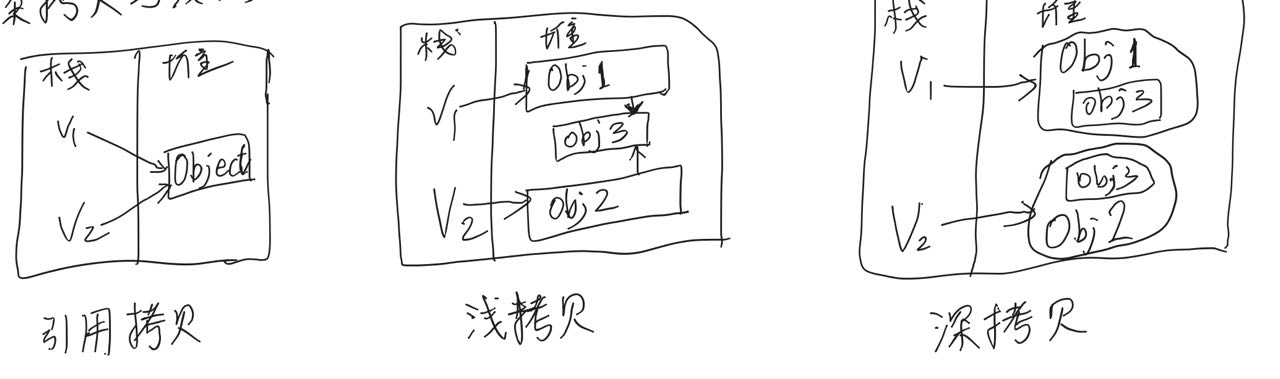 深拷贝与浅拷贝
栈 堆
V1
V2
Object
引用拷贝
栈 堆
V1
Obj1
obj3
V2
obj2
浅拷贝
栈 堆
V1
Obj1
obj3
obj3
V2
Obj2
深拷贝